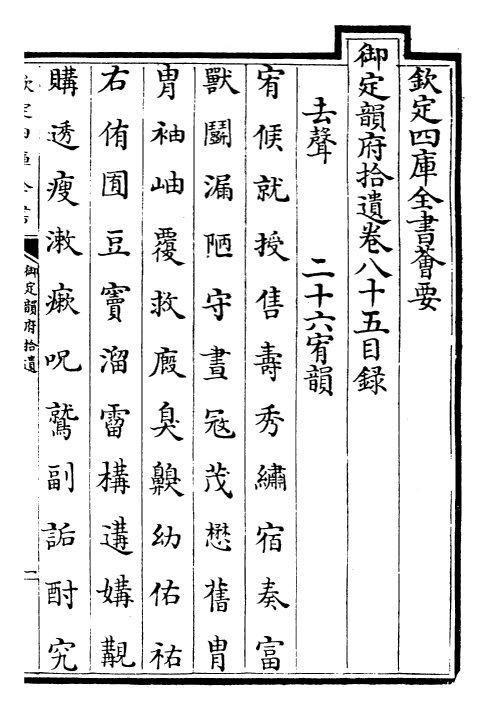 欽定四庫全書薈要
御定韻府拾遺卷八十五目録
去聲　二十六宥韻
宥候就授售壽秀繡宿奏富
獸鬭漏陋守晝冦茂懋舊胄
胄袖岫覆救廄臭齅幼佑祐
右侑囿豆竇溜霤構遘媾覯
購透瘦漱瘶呪鷲副詬酎究
御定韻府拾遺
一